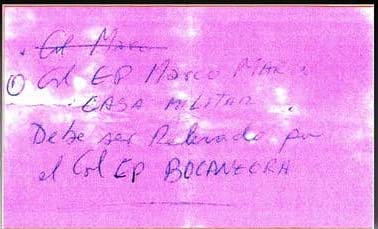 . Col Marco
① Col EP Marco MARIN
CASA MILITAR.
Debe ser Relevado por
el Col EP BOCANEGRA